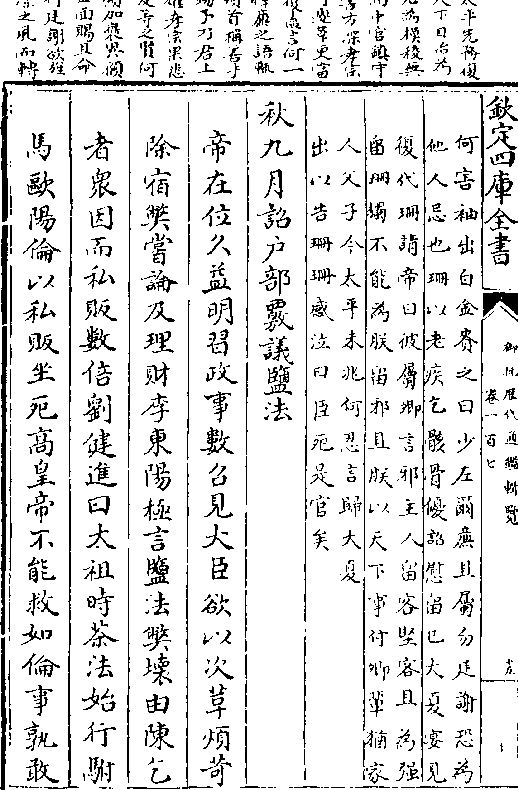 太平先務復
天下日治為
為模稜無
中官鎮守
欽定四庫全書
御批歷代通鑑輯覽
卷一百七
何害袖出白金賚之曰少左爾廉且屬勿廷謝恐為
他人忌也珊以老疾乞骸骨優詔慰留已大夏宴見
復代珊請帝曰彼屬卿言邪主人留客堅客且為强
留珊獨不能為朕留邪且朕以天下事付卿輩猶家
人父子今太平未兆何忍言歸大夏
出以告珊珊感泣曰臣死是官矣
秋九月詔户部覈議鹽法
帝在位久益明習政事數召見大臣欲以次革煩苛
除宿弊嘗論及理財李東陽極言鹽法弊壞由陳乞
者衆因而私販數倍劉健進曰太祖時茶法始行駙
馬歐陽倫以私販坐死高皇帝不能救如倫事孰敢